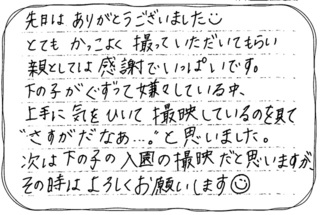 先日は ありがとうございました☺
とても かっこよく 撮っていただいてもらい
親としては 感謝でいっぱいです。
下の子がぐずって嫌々している中、
上手に 気をひいて 撮映しているのを見て
“さすがだなぁ...。”と思いました。
次は下の子の入園の撮映だと思いますが、
その時は よろしくお願いします☺